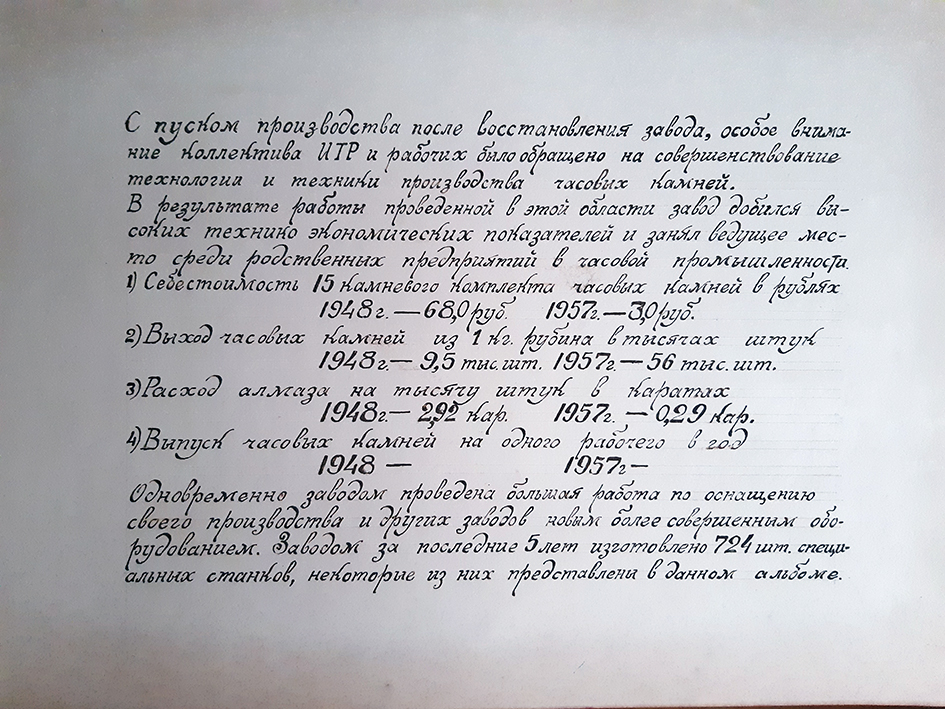 С пуском производства после восстановления завода, особое внима-
ние коллектива ИТР и рабочих было обращено на совершенствование
технологии и техники производства часовых камней.
В результате работы проведенной в этой области завод добился вы-
соких технико экономических показателей и занял ведущее мес-
то среди родственных предприятий в часовой промышленности.
1) Себестоимость 15 камневого комплекта часовых камней в рублях
1948 г. — 68,0 руб. 1957 г. — 3,0 руб.
2) Выход часовых камней из 1 кг. рубина в тысячах штук
1948 г. — 9,5 тыс. шт. 1957 г. — 56 тыс. шт.
3) Расход алмаза на тысячу штук в каратах
1948 г. — 2,92 кар. 1957 г. — 0,29 кар.
4) Выпуск часовых камней на одного рабочего в год
1948 — 1957 г —
Одновременно заводом проведена большая работа по оснащению
своего производства и других заводов новым более совершенным обо-
рудованием. Заводом за последние 5 лет изготовлено 724 шт. специ-
альных станков, некоторые из них представлены в данном альбоме.